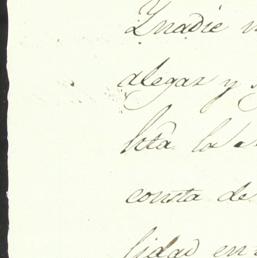 Ynadie
alegar y
hta la
consta de
lidad en